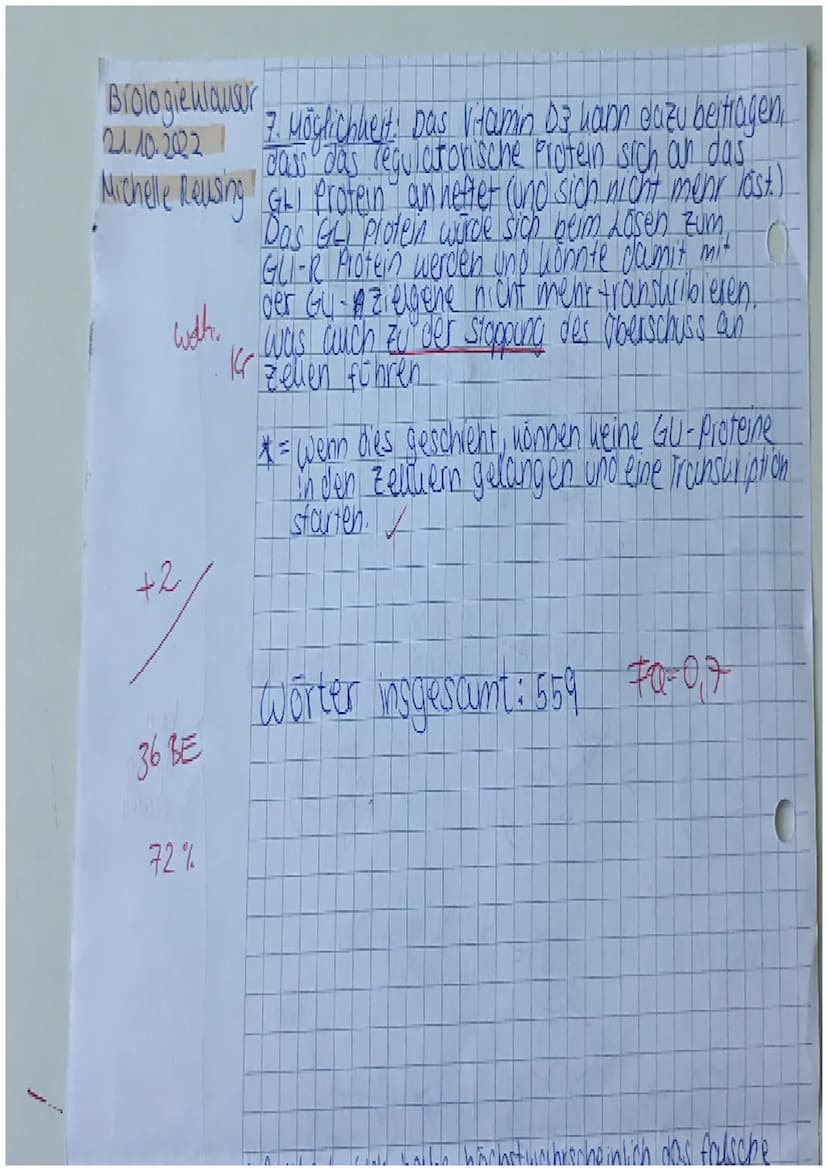 Biologieklausur
21.10.2022
Michelle Reusing
7. Möglichkeit: Das Vitamin D3 kann dazu beitragen,
dass das regulatorische Protein sich an das
GLI Protein anheftet (und sich nicht mehr löst.)
Das GLI Protein würde sich beim Lösen zum
GLI-R Protein werden und könnte damit mit
der GLI-Zielgene nicht mehr transkribieren.
Wdh.
was auch zu der Stoppung des Überschuss an
Gr
Zellen führen
* = Wenn dies geschieht, können keine GLI-Proteine
in den Zellkern gelangen und eine Transkription
starten. ✓
+2
Wörter insgesamt: 559
FQ=0,7
36 BE
72%
höchstwahrscheinlich das falsche